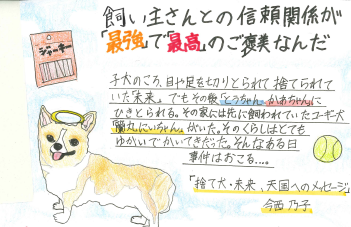 飼い主さんとの信頼関係が
「最強」で「最高」のご褒美なんだ
ジャーキー
子犬のころ、目や足を切りとられて捨てられて
いた「未来」。でもその後「とうちゃん、かあちゃん」に
ひきとられる。その家には先に飼われていたコーギー犬
「蘭丸にいちゃん」がいた。そのくらしはとても
ゆかいでかいてきだった。そんなある日
事件はおこる…。
「捨て犬・未来、天国へのメッセージ」
今西乃子